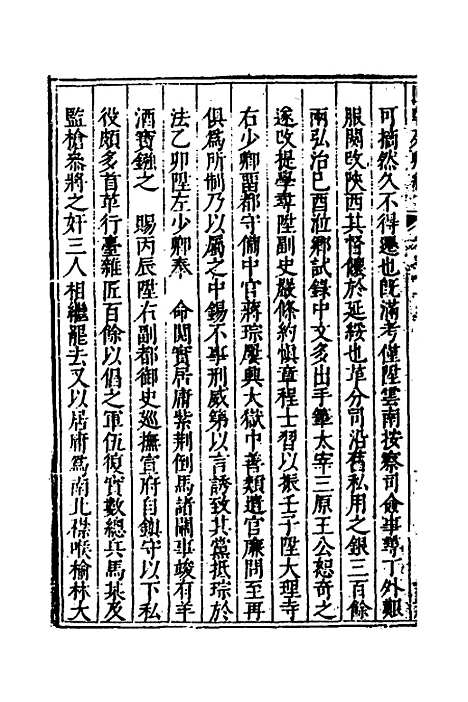 可摘然久不得遷也旣滿考僅陞雲南按察司僉事尋丁外艱
服闋改陝西其督儲於延綏也革分司沿舊私用之銀三百餘
兩弘治己酉涖鄉試錄中文多出手筆太宰三原王公恕奇之
遂改提學尋陞副史嚴條約愼章程士習以振壬子陞大理寺
右少卿畱都守備中官蔣琮屢興大獄中善類遣官廉問至再
俱爲所制乃以屬之中錫不事刑威第以言誘致其黨抵琮於
法乙卯陞左少卿奉 命閱實居庸紫荆倒馬諸關事竣有羊
酒寶鏹之 賜丙辰陞右副都御史巡撫宣府自鎭守以下私
役頗多首革行臺雜匠百餘以倡之軍伍復實數總兵馬某及
監槍叅將之奸三人相繼罷去又以居庸爲南北襟喉榆林大